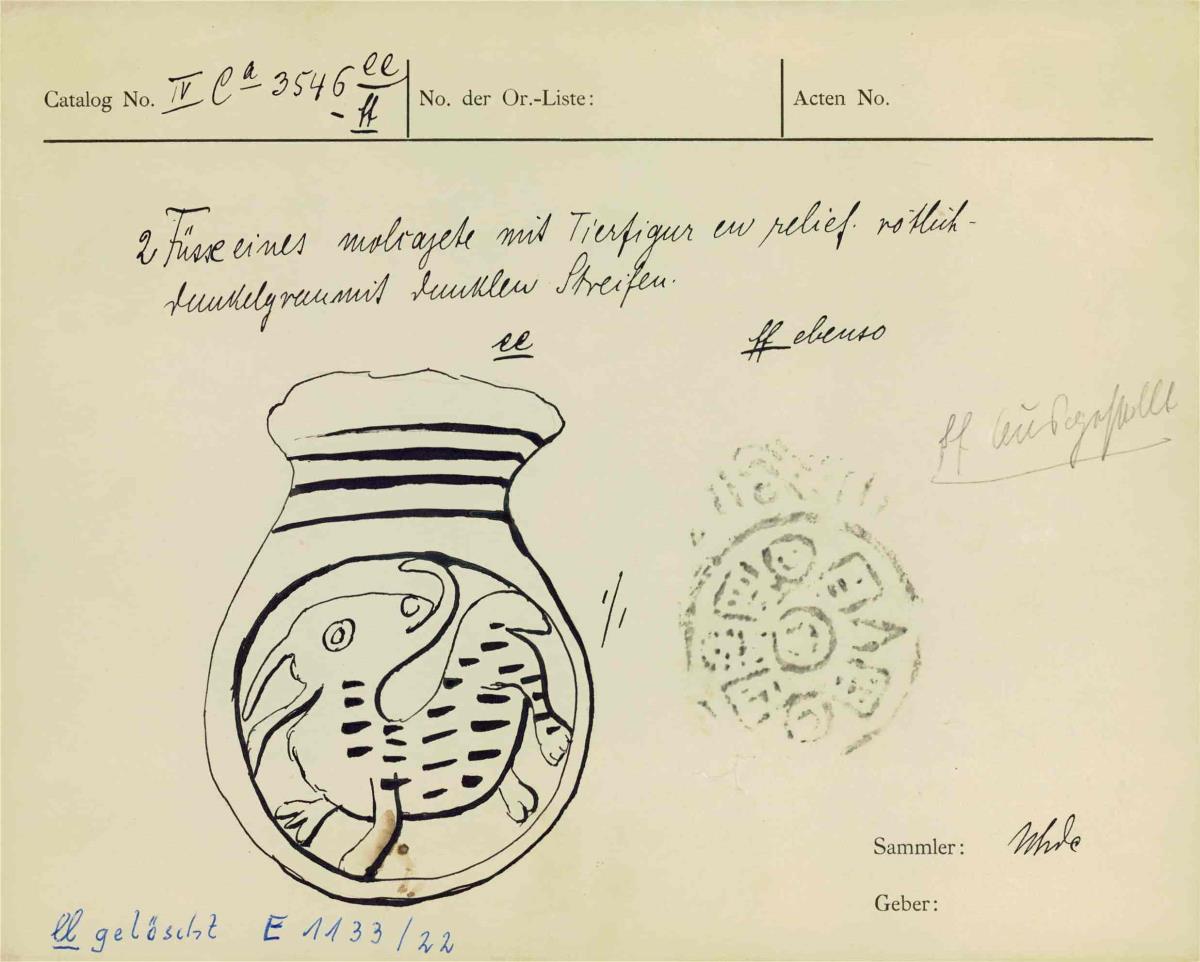 Catalog No. IV Ca 3546 ee
- ff
No. der Or.-Liste:
Acten No.
2 Füsse eines molcajete mit Tierfigur en relief. rötlich-
dunkelgrau mit dunklen Streifen.
ee
ff ebenso
ff ausgestellt
1/1
Sammler: Uhde
Geber:
ee gelöscht E 1133/22